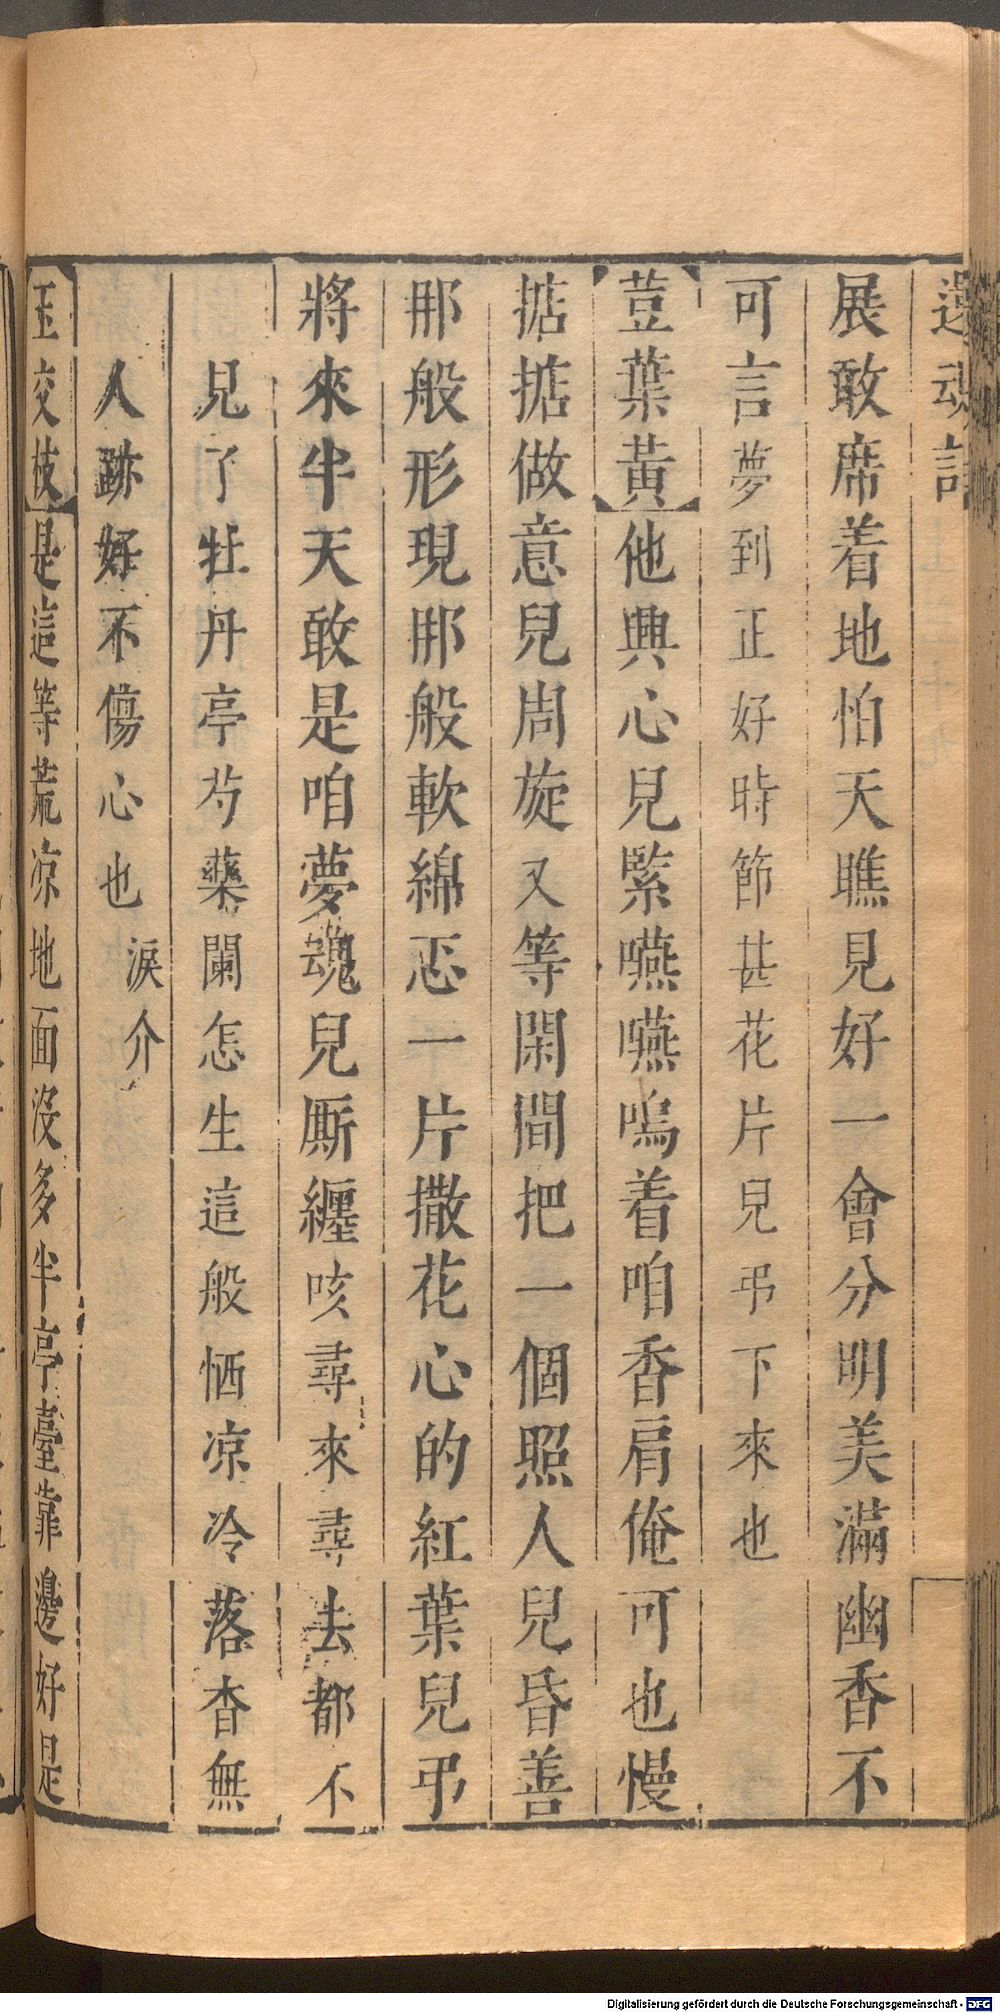 還魂記
展敢席着地怕天瞧見好一會分明美滿幽香不
可言夢到正好時節甚花片兒弔下來也
荳葉黃他興心見緊嚥嚥嗚着咱香肩俺可也慢
掂掂做意兒周旋又等閑間把一個照人兒昏善
那般形現那般軟綿忑一片撒花心的紅葉兒弔
將來半天敢是咱夢魂兒厮纏咳尋來尋去都不
見了牡丹亭芍藥闌怎生這般恓凉冷落杳無
人跡好不傷心也淚介
玉交枝是這等荒凉地面沒多半亭臺靠邊好是
Digitalisierung gefördert durch die Deutsche Forschungsgemeinschaft - DFG